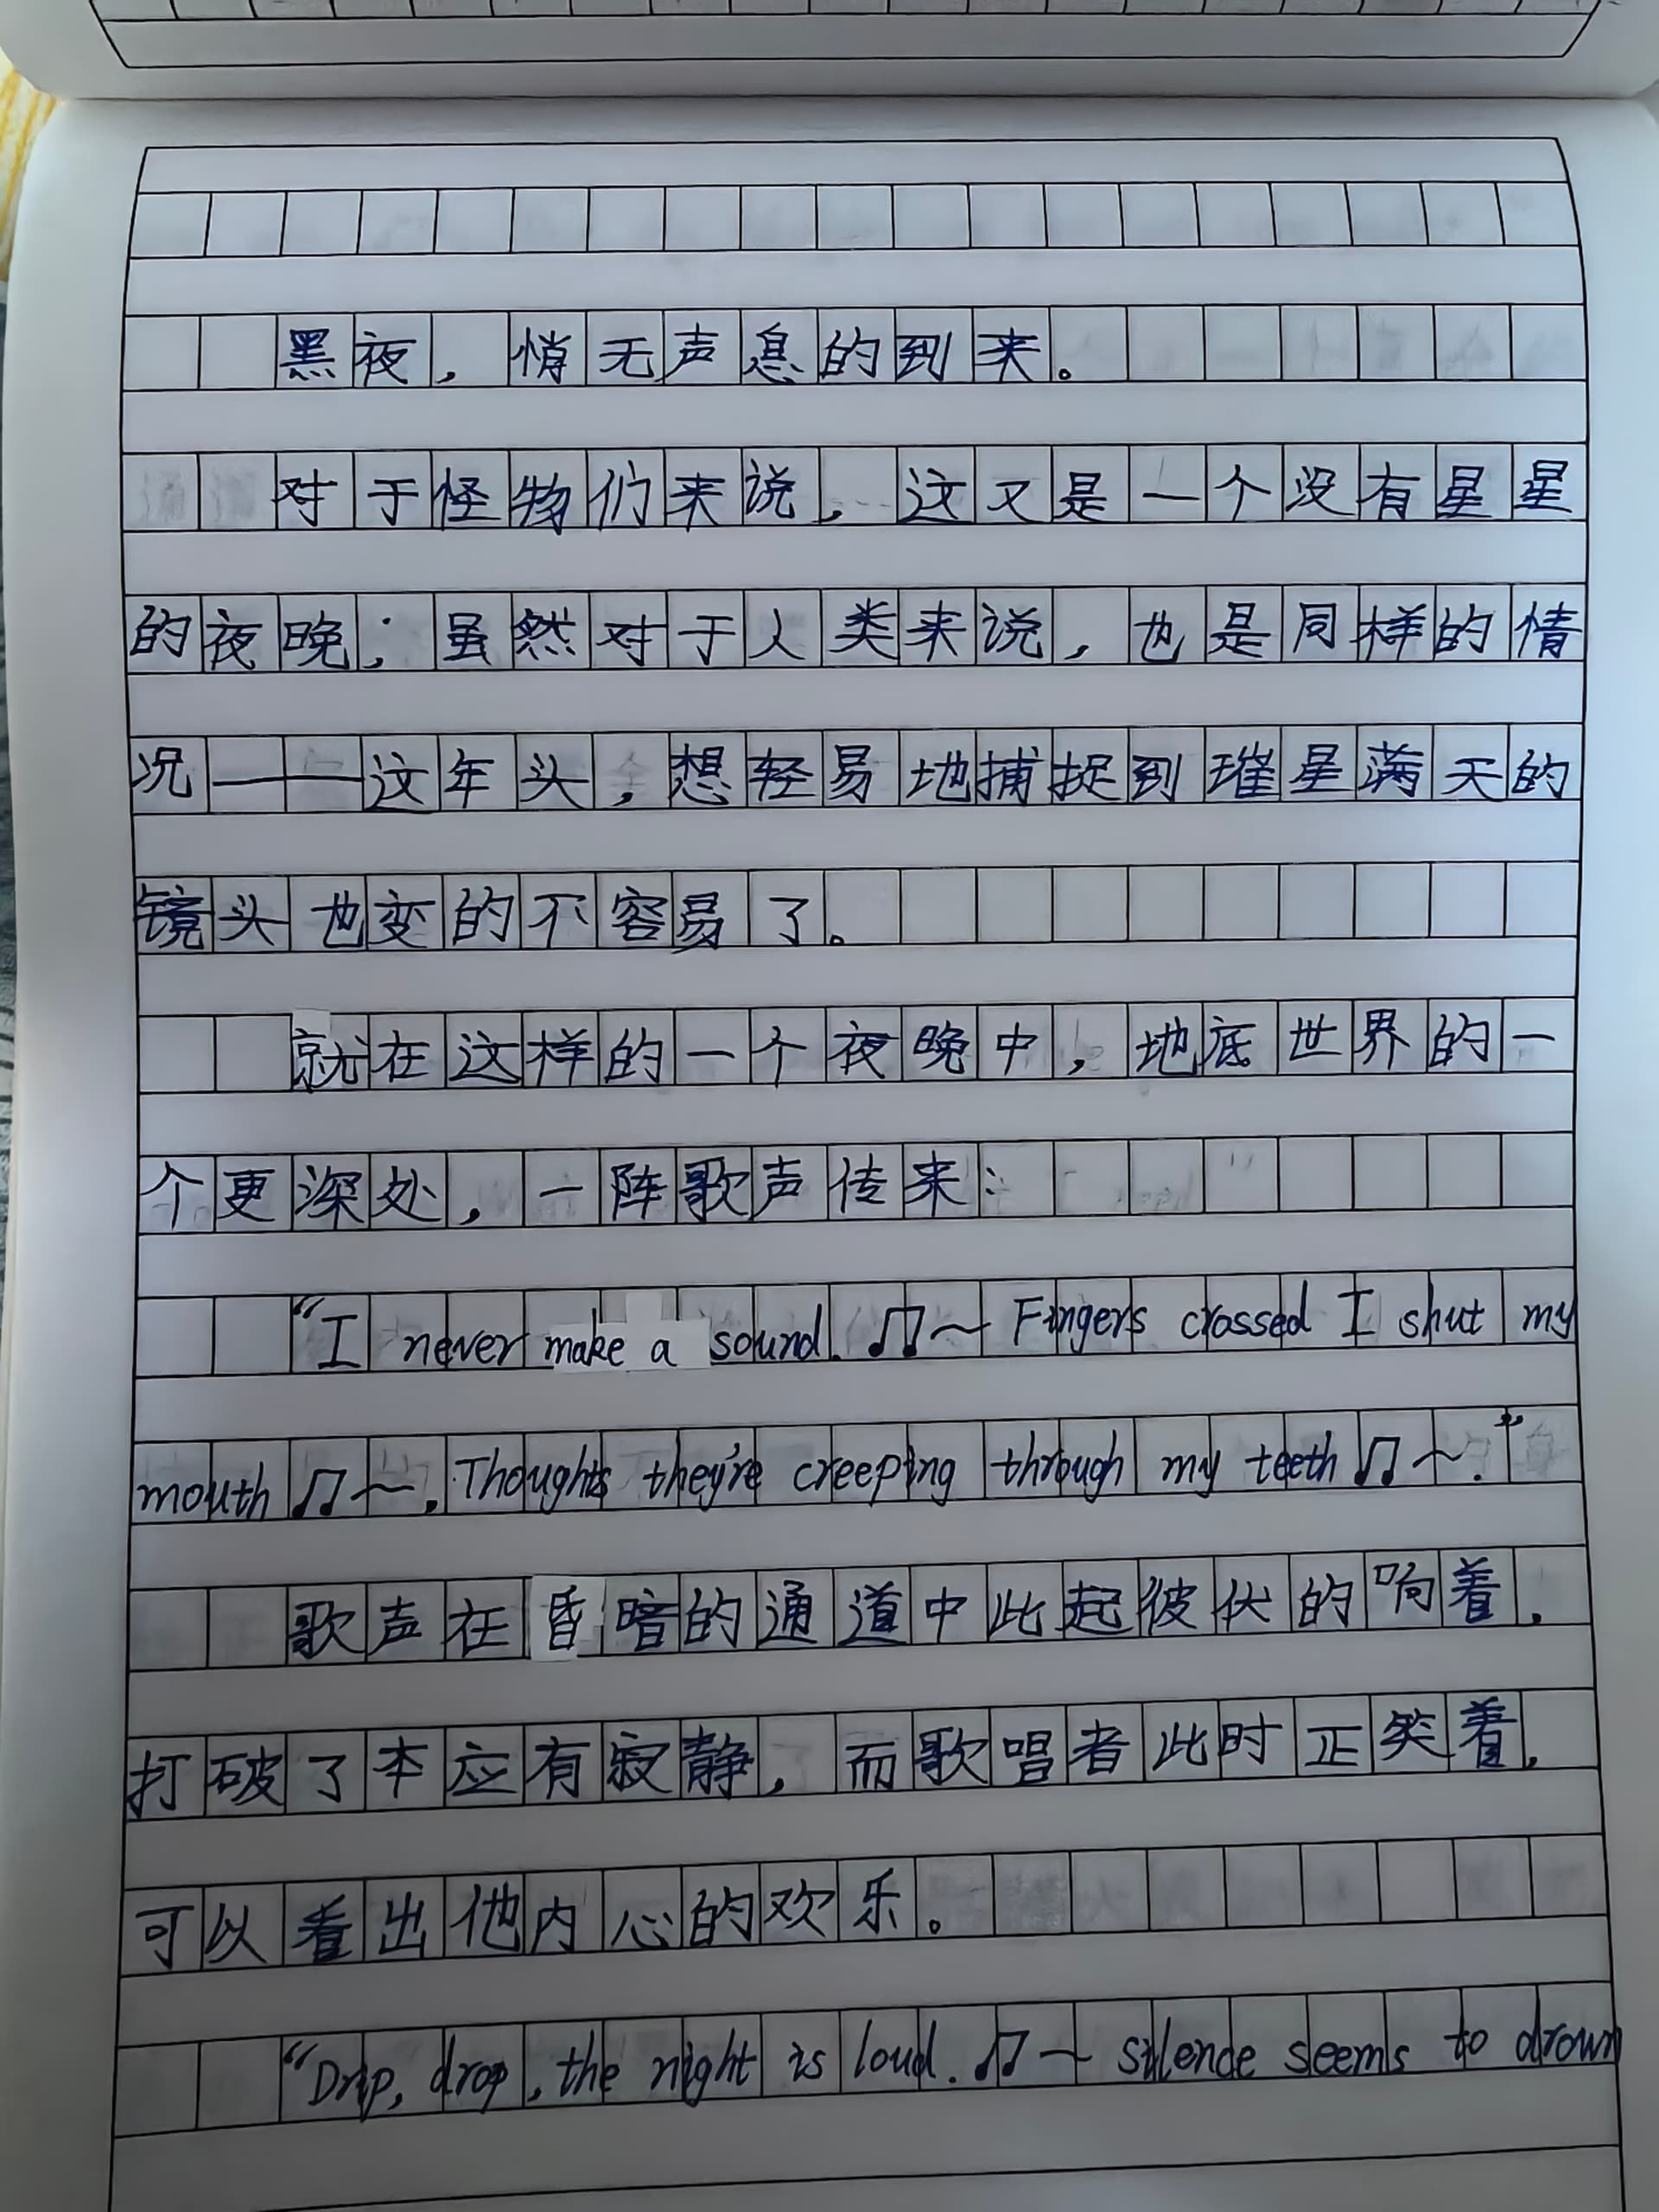 黑夜，悄无声息的到来。
对于怪物们来说，这又是一个没有星星
的夜晚；虽然对于人类来说，也是同样的情
况——这年头，想轻易地捕捉到璀星满天的
镜头也变的不容易了。
就在这样的一个夜晚中，地底世界的一
个更深处，一阵歌声传来：
“I never make a sound. ♫～ Fingers crossed I shut my
mouth ♫～. Thoughts they're creeping through my teeth ♫～.”
歌声在昏暗的通道中此起彼伏的响着，
打破了本应有寂静，而歌唱者此时正笑着，
可以看出他内心的欢乐。
“Drip, drop, the night is loud. ♫～ silence seems to drown